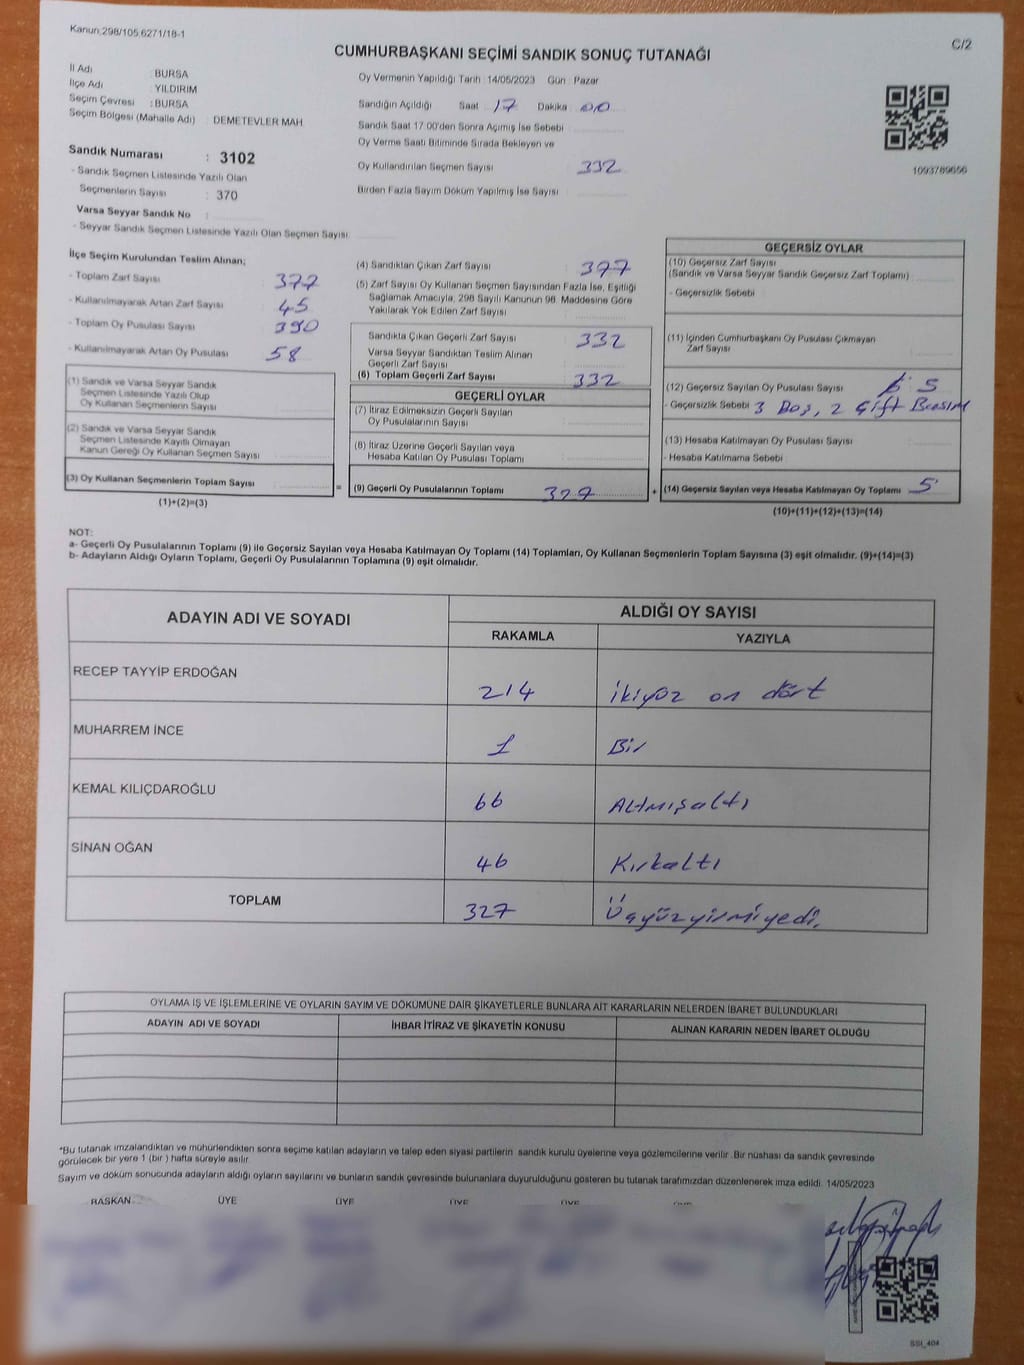 Kanun.298/105.6271/18-1
C/2
CUMHURBAŞKANI SEÇİMİ SANDIK SONUÇ TUTANAĞI
İl Adı : BURSA
İlçe Adı : YILDIRIM
Seçim Çevresi : BURSA
Seçim Bölgesi (Mahalle Adı) : DEMETEVLER MAH.
Oy Vermenin Yapıldığı Tarih : 14/05/2023 Gün : Pazar
Sandığın Açıldığı Saat 17 Dakika 00
Sandık Saat 17:00'den Sonra Açımış İse Sebebi
Oy Verme Saati Bitiminde Sırada Bekleyen ve
Oy Kullandırılan Seçmen Sayısı 332
Birden Fazla Sayım Döküm Yapılmış İse Sayısı
1093789656
Sandık Numarası : 3102
- Sandık Seçmen Listesinde Yazılı Olan
Seçmenlerin Sayısı : 370
Varsa Seyyar Sandık No :
- Seyyar Sandık Seçmen Listesinde Yazılı Olan Seçmen Sayısı
İlçe Seçim Kurulundan Teslim Alınan;
- Toplam Zarf Sayısı 377
- Kullanılmayarak Artan Zarf Sayısı 45
- Toplam Oy Pusulası Sayısı 390
- Kullanılmayarak Artan Oy Pusulası 58
(1) Sandık ve Varsa Seyyar Sandık
Seçmen Listesinde Yazılı Olup
Oy Kullanan Seçmenlerin Sayısı
(2) Sandık ve Varsa Seyyar Sandık
Seçmen Listesinde Kayıtlı Olmayan
Kanun Gereği Oy Kullanan Seçmen Sayısı
(3) Oy Kullanan Seçmenlerin Toplam Sayısı
=
(1)+(2)=(3)
(4) Sandıktan Çıkan Zarf Sayısı
(5) Zarf Sayısı Oy Kullanan Seçmen Sayısından Fazla İse, Eşitliği
Sağlamak Amacıyla, 298 Sayılı Kanunun 98. Maddesine Göre
Yakılarak Yok Edilen Zarf Sayısı
Sandıkta Çıkan Geçerli Zarf Sayısı 332
Varsa Seyyar Sandıktan Teslim Alınan
Geçerli Zarf Sayısı
(6) Toplam Geçerli Zarf Sayısı 332
GEÇERLİ OYLAR
(7) İtiraz Edilmeksizin Geçerli Sayılan
Oy Pusulalarının Sayısı
(8) İtiraz Üzerine Geçerli Sayılan veya
Hesaba Katılan Oy Pusulası Toplamı
(9) Geçerli Oy Pusulalarının Toplamı 327
+
GEÇERSİZ OYLAR
(10) Geçersiz Zarf Sayısı
(Sandık ve Varsa Seyyar Sandık Geçersiz Zarf Toplamı)
- Geçersizlik Sebebi
(11) İçinden Cumhurbaşkanı Oy Pusulası Çıkmayan
Zarf Sayısı
(12) Geçersiz Sayılan Oy Pusulası Sayısı 5
- Geçersizlik Sebebi 3 Boş, 2 Çift Basım
(13) Hesaba Katılmayan Oy Pusulası Sayısı
- Hesaba Katılmama Sebebi
(14) Geçersiz Sayılan veya Hesaba Katılmayan Oy Toplamı 5
(10)+(11)+(12)+(13)=(14)
NOT:
a- Geçerli Oy Pusulalarının Toplamı (9) ile Geçersiz Sayılan veya Hesaba Katılmayan Oy Toplamı (14) Toplamları, Oy Kullanan Seçmenlerin Toplam Sayısına (3) eşit olmalıdır. (9)+(14)=(3)
b- Adayların Aldığı Oyların Toplamı, Geçerli Oy Pusulalarının Toplamına (9) eşit olmalıdır.
ADAYIN ADI VE SOYADI
ALDIĞI OY SAYISI
RAKAMLA YAZIYLA
RECEP TAYYİP ERDOĞAN 214 İkiyüz on dört
MUHARREM İNCE 1 Bir
KEMAL KILIÇDAROĞLU 66 Altmışaltı
SİNAN OĞAN 46 Kırkaltı
TOPLAM 327 Üçyüzyirmiyedi.
OYLAMA İŞ VE İŞLEMLERİNE VE OYLARIN SAYIM VE DÖKÜMÜNE DAİR ŞİKAYETLERLE BUNLARA AİT KARARLARIN NELERDEN İBARET BULUNDUKLARI
ADAYIN ADI VE SOYADI İHBAR İTİRAZ VE ŞİKAYETİN KONUSU ALINAN KARARIN NEDEN İBARET OLDUĞU
*Bu tutanak imzalandıktan ve mühürlendikten sonra seçime katılan adayların ve talep eden siyasi partilerin sandık kurulu üyelerine veya gözlemcilerine verilir. Bir nüshası da sandık çevresinde
görülecek bir yere 1 (bir ) hafta süreyle asılır.
Sayım ve döküm sonucunda adayların aldığı oyların sayılarını ve bunların sandık çevresinde bulunanlara duyurulduğunu gösteren bu tutanak tarafımızdan düzenlenerek imza edildi. 14/05/2023
BAŞKAN ÜYE ÜYE ÜYE ÜYE
SSİ_404